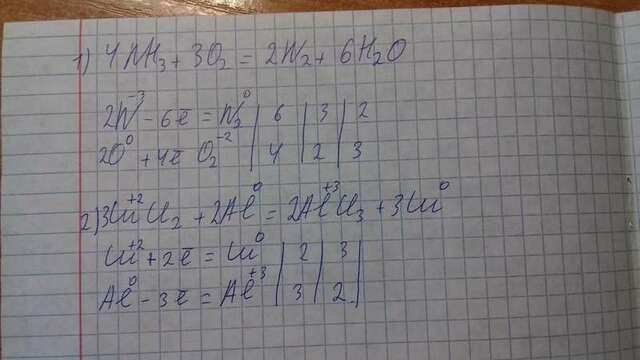 1) 4NH₃ + 3O₂ = 2N₂ + 6H₂O
2N⁻³ - 6ē = N₂⁰ | 6 | 3 | 2
2O⁰ + 4ē O₂⁻² | 4 | 2 | 3
2) 3Cu⁺²Cl₂ + 2Al⁰ = 2Al⁺³Cl₃ + 3Cu⁰
Cu⁺² + 2ē = Cu⁰ | 2 | 3
Al⁰ - 3ē = Al⁺³ | 3 | 2